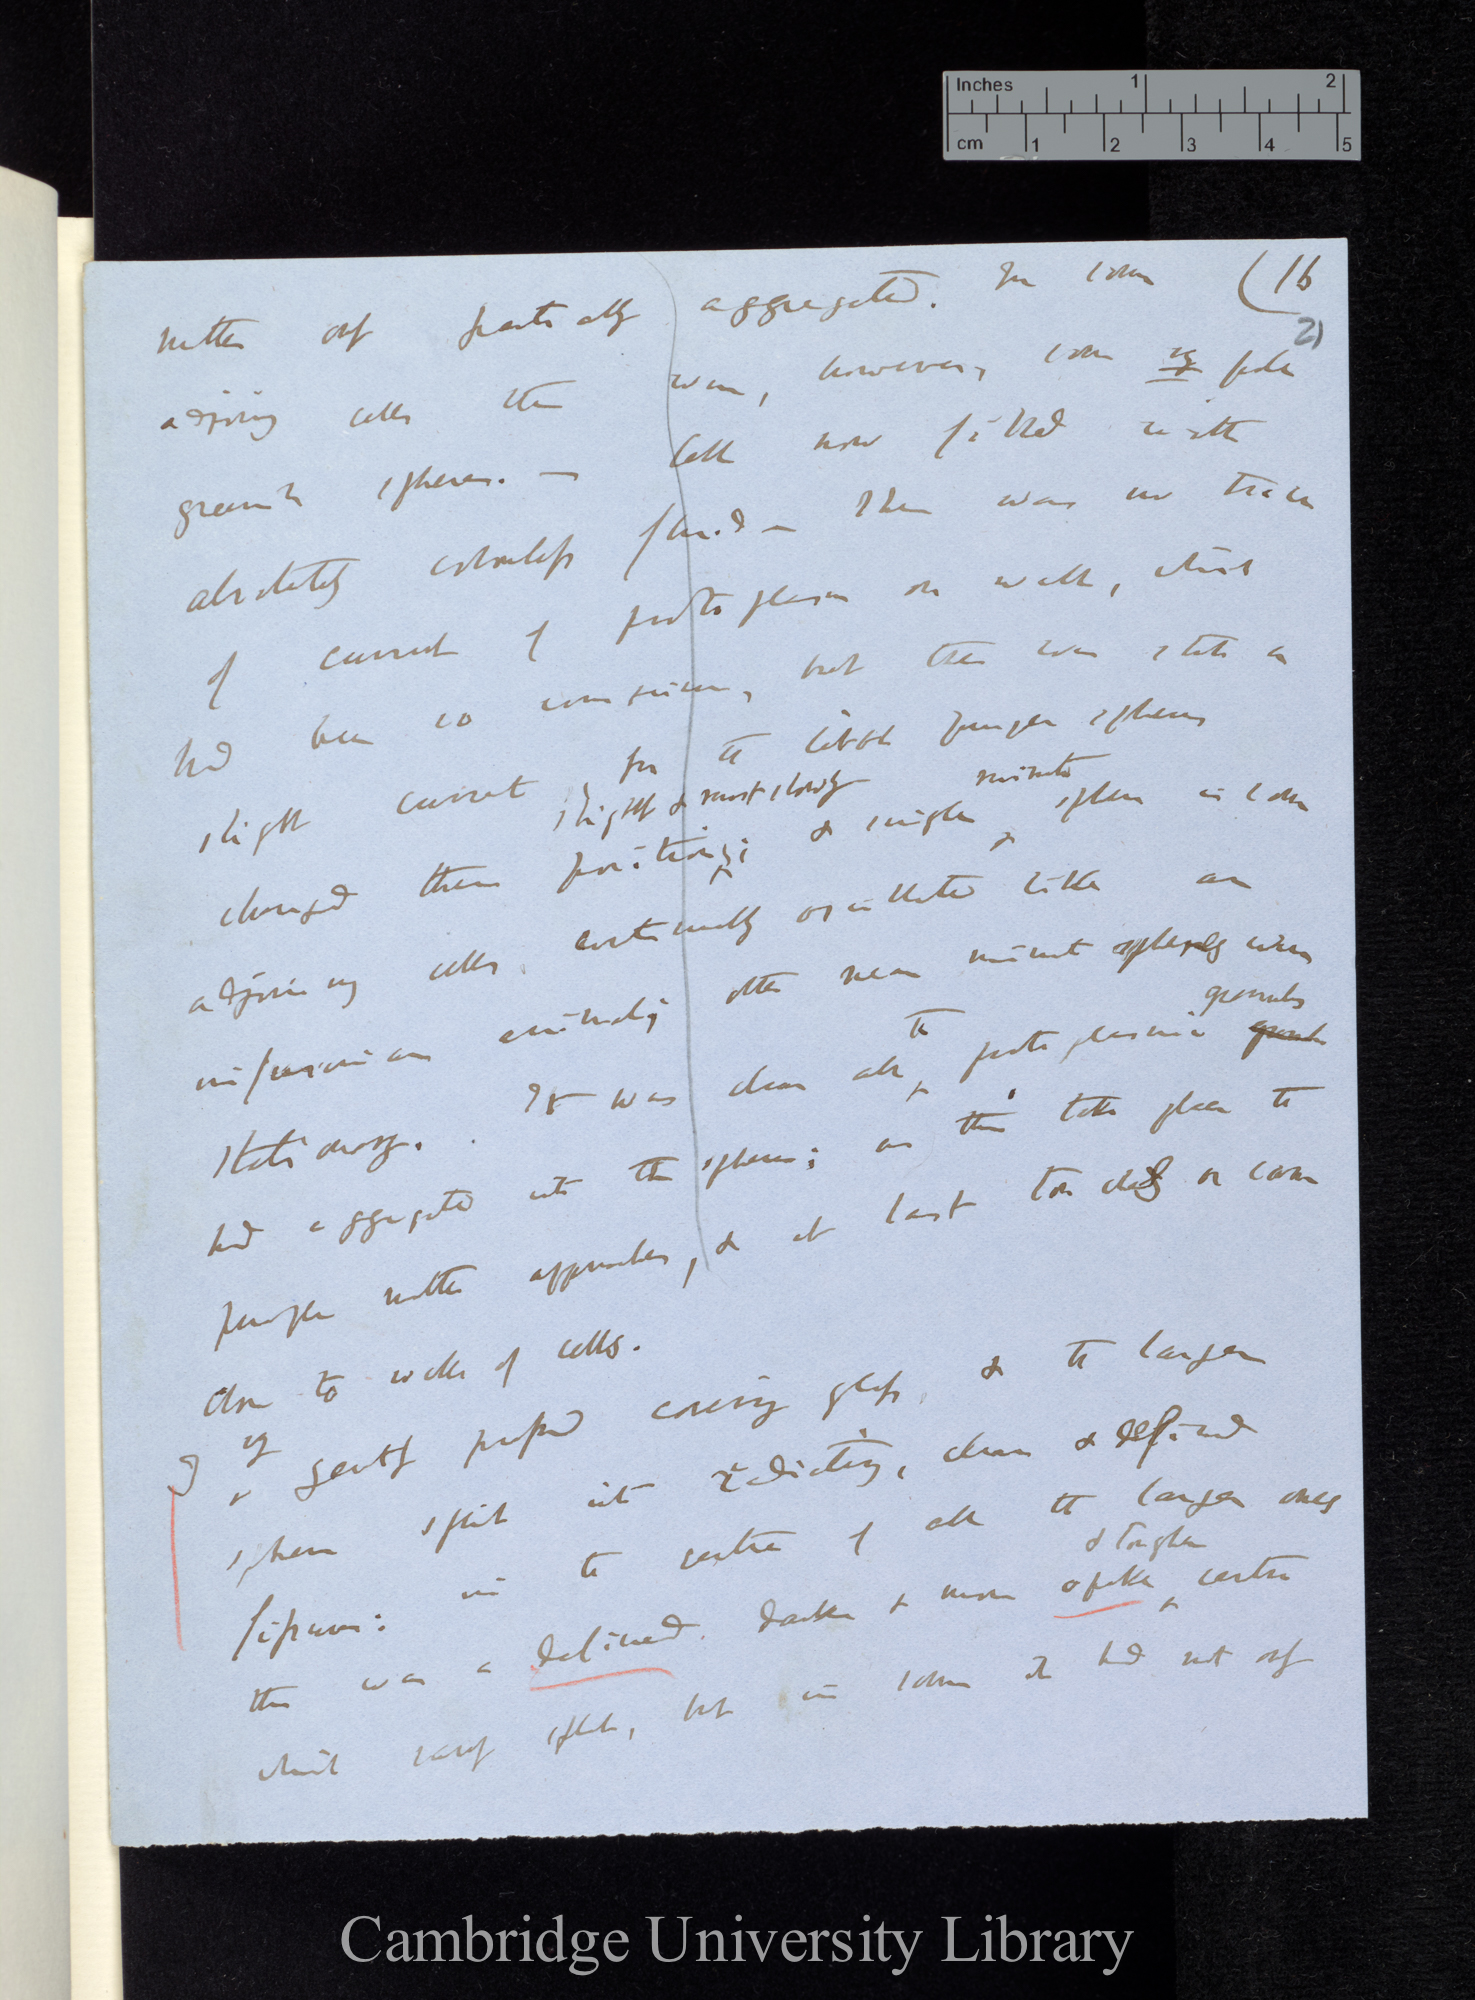 Inches 1 2
cm 1 2 3 4 5
(16
21
matter only partially aggregated. In some
adjoining cells there were, however, some very pale
greenish spheres. — Cell now filled with
absolutely colourless fluid — There was no trace
of current of protoplasm on walls, which
had been so conspicuous, but there was still a
slight current, for the little purple spheres
slight & most slowly minute
changed their positions; & single sphere in some
adjoining cells continually oscillated like an
infusorian animal; other near minute spheres were
granules
stationary. It was clear all the protoplasmic
had aggregated into the spheres; as this takes place the
purple matter approaches, & at last touches or comes
close to walls of cells.
I very gently pressed covering glass, & the larger
spheres split into radiating, clear & defined
fissures: in the centre of all the larger ones
& tougher
there was a defined darker & more opake centre
which rarely split, but in some it had not only
Cambridge University Library